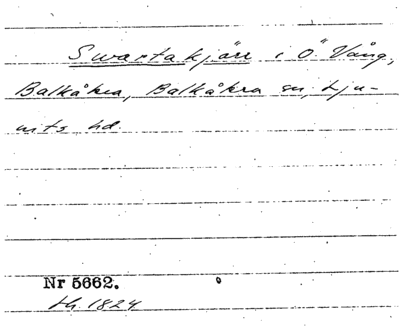 Swartakjärr i Ö. Vång,
Balkåkra, Balkåkra sn, Lju-
nits hd.
Nr 5662.
LH. 1824